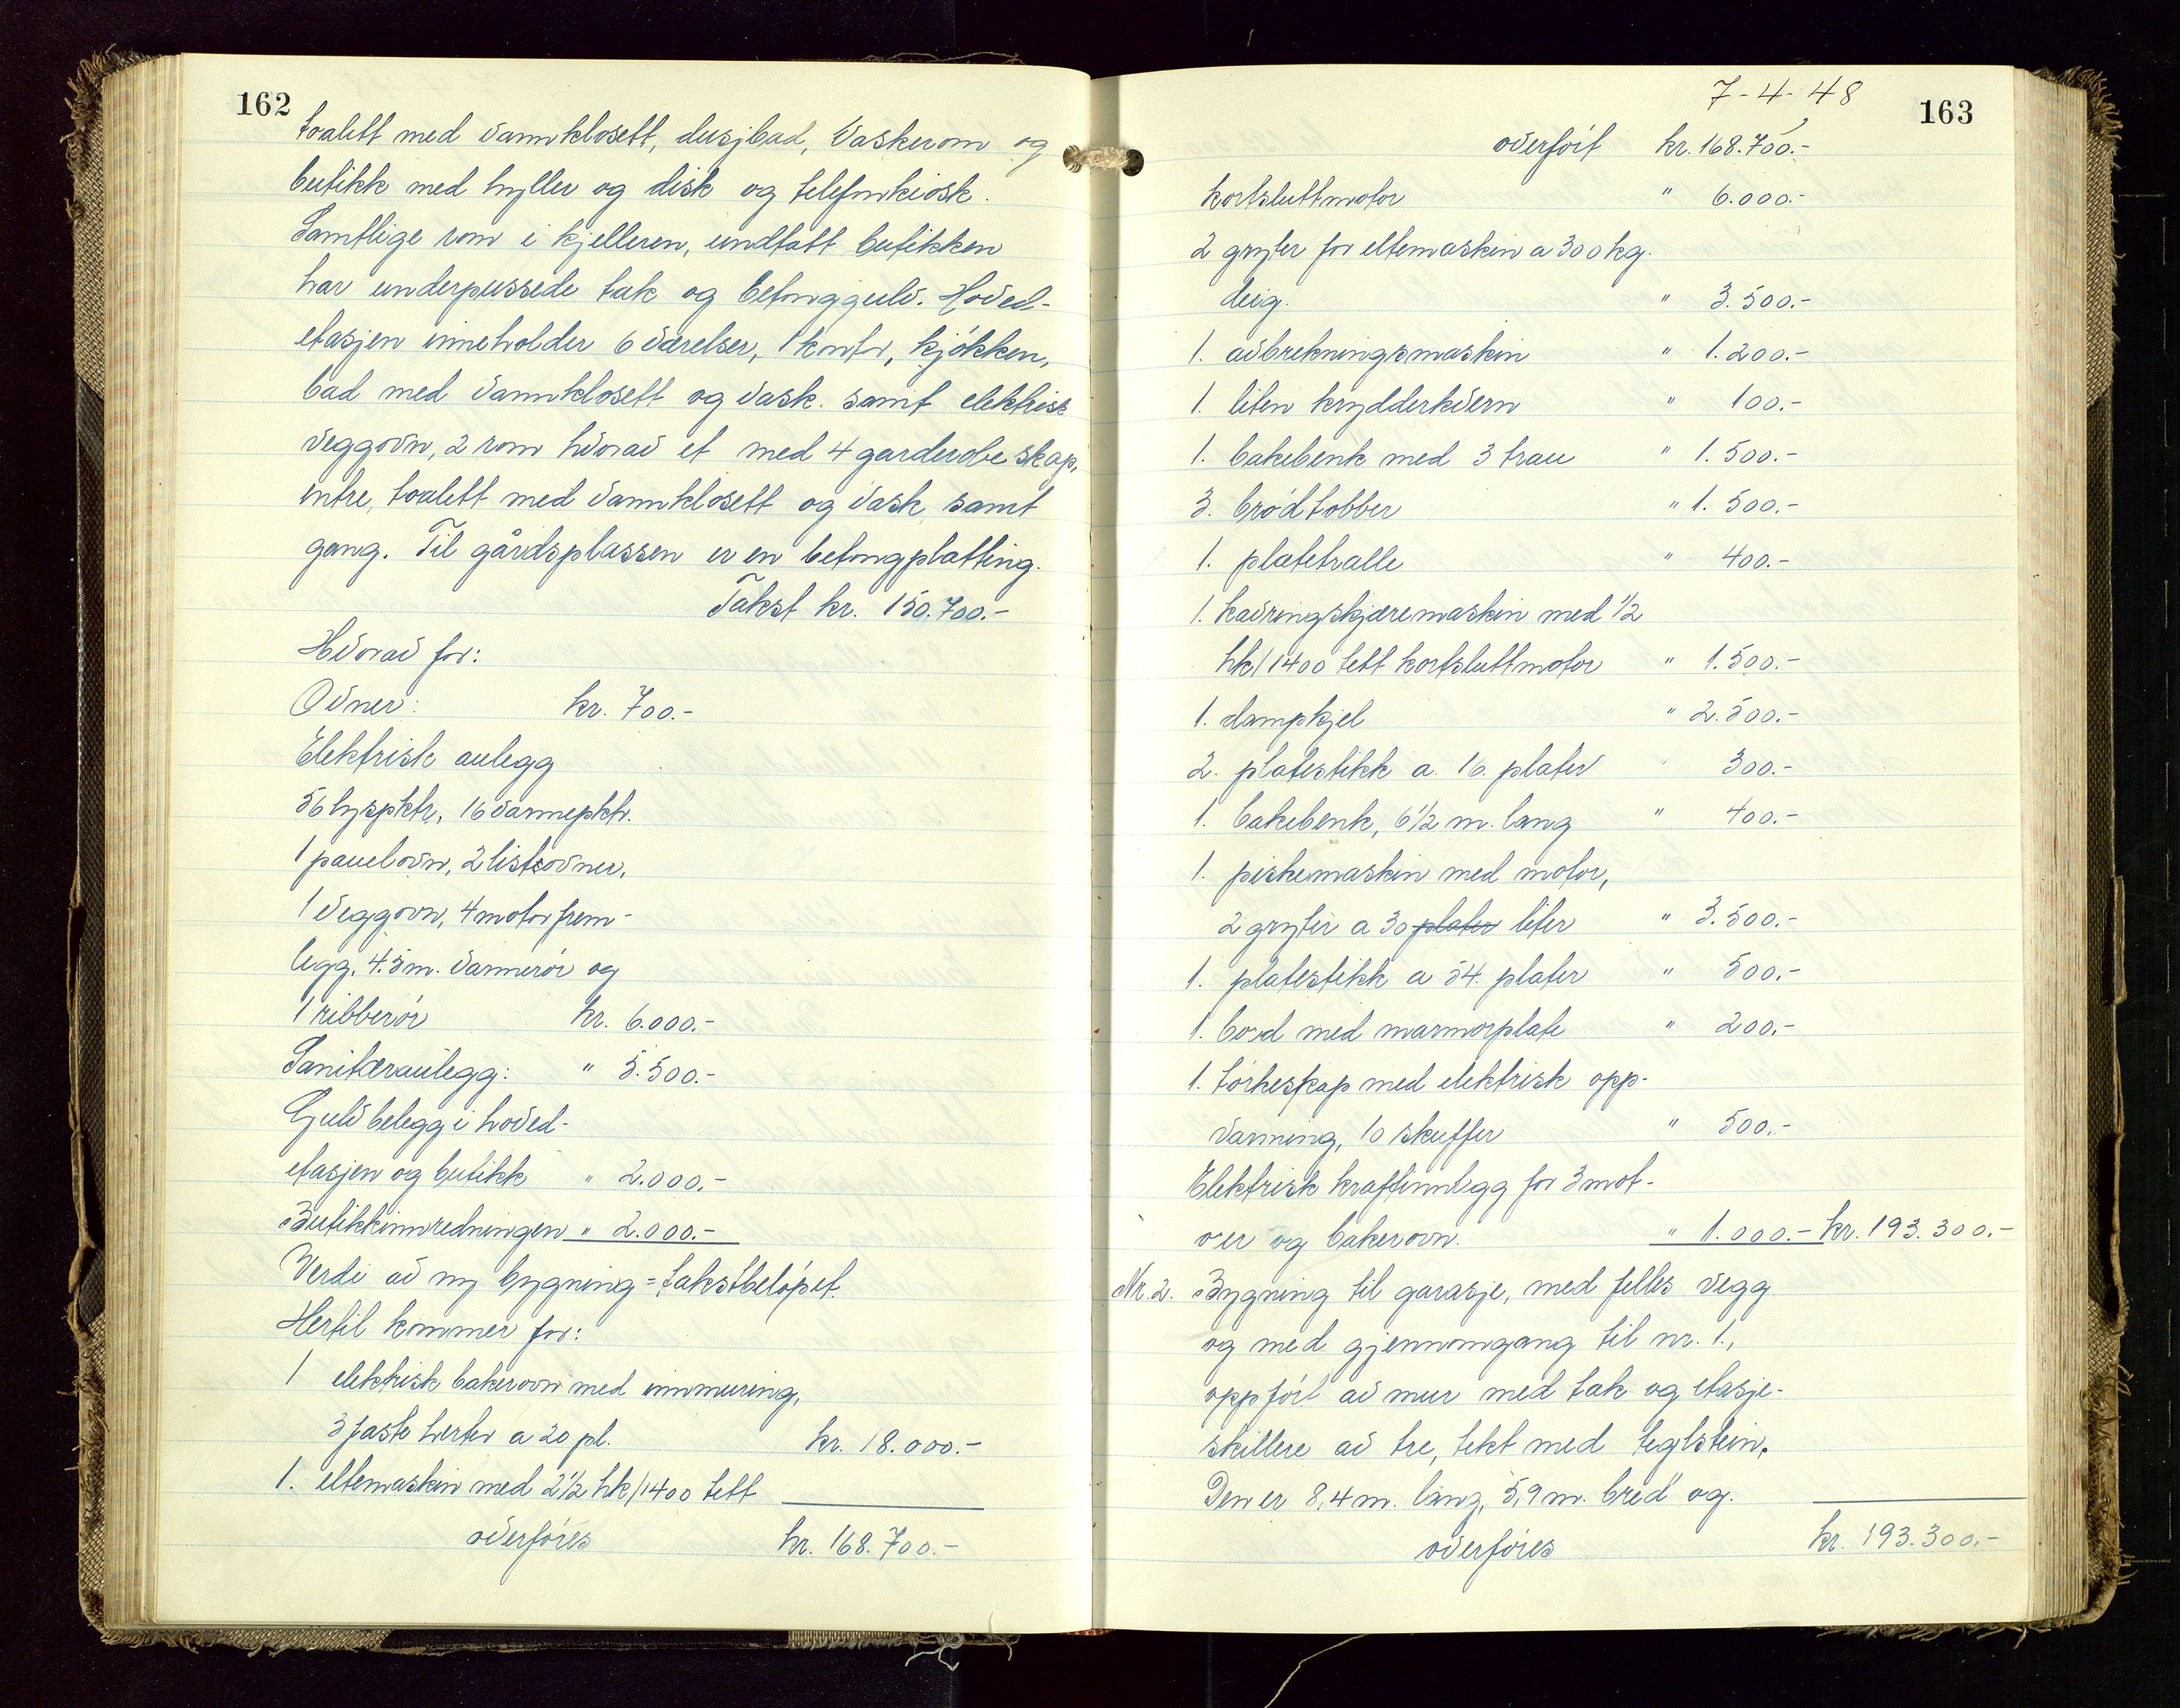 162
toalett med vannklosett, dusjbad, vaskerom og
butikk med hyller og disk og telefonkiosk.
Samtlige rom i kjelleren, undtatt butikken
har underpussede tak og betonggulv. Hoved-
etasjen inneholder 6 værelser, 1 kontor, kjøkken,
bad med vannklosett og vask. samt elektrisk
veggovn, 2 rom hvorav et med 4 garderobeskap,
entre, toalett med vannklosett og vask samt
gang. Til gårdsplassen er en betongplatting.
Takst kr. 150.700.-
Hvorav for:
Ovner: kr. 700.-
Elektrisk anlegg
56 lyspktr, 16 varmepktr.
1 panelovn, 2 listeovner,
1 veggovn, 4 motorfrem-
legg, 4.5 m. varmerør og
1 ribberør kr. 6.000.-
Sanitæranlegg: " 5.500.-
Gulvbelegg i hoved-
etasjen og butikk " 2.000.-
Butikkinnredningen " 2.000.-
Verdi av ny bygning = takstbeløpet.
Hertil kommer for:
1 elektrisk bakerovn med innmuring,
3 faste herter a 20 pl. kr. 18.000.-
1. eltemaskin med 2 1/2 hk/1400 tett
overføres kr. 168.700.-
7-4-48
163
overført kr. 168.700.-
kortsluttmotor " 6.000.-
2 gryter for eltemaskin a 300 kg.
deig. " 3.500.-
1. avbrekningsmaskin " 1.200.-
1. liten krydderkvern " 100.-
1. bakebenk med 3 trau " 1.500.-
3. brødtobber " 1.500.-
1. platetralle " 400.-
1. kavringskjæremaskin med 1/2
hk/1400 tett kortsluttmotor " 1.500.-
1. dampkjel " 2.500.-
2. platestikk a. 16. plater " 300.-
1. bakebenk, 6 1/2 m. lang " 400.-
1. piskemaskin med motor,
2 gryter a 30 plater liter " 3.500.-
1. platestikk a 54. plater " 500.-
1. bord med marmorplate " 200.-
1. tørkeskap med elektrisk opp-
varming, 10 skuffer " 500.-
Elektrisk kraftinnlegg for 3 mot-
orer og bakerovn. " 1.000.- kr. 193.300.-
Nr. 2. Bygning til garasje, med felles vegg
og med gjennomgang til nr. 1.,
oppført av mur med tak og etasje-
skillere av tre, tekt med teglstein.
Den er 8,4 m. lang, 5,9 m. bred og.
overføres kr. 193.300.-